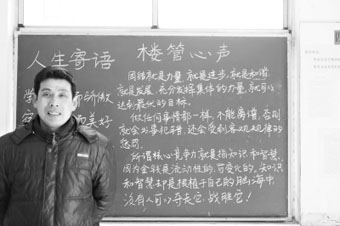 人生寄语 楼管心声
团结就是力量,就是进步,就是和谐,
就是发展,充分发挥集体的力量,就可以
达到最低的目标。
做任何事情都一样,不能离谱,否则
就会刘暑犯错,还会受到客观规律的
惩罚。
所谓核心竞争力就是指知识和智慧,
因为金钱是流动性的,可变化的,知识
和智慧却是根植于自己的脑海中,
没有人可以夺走它,战胜它!
学
容 美好